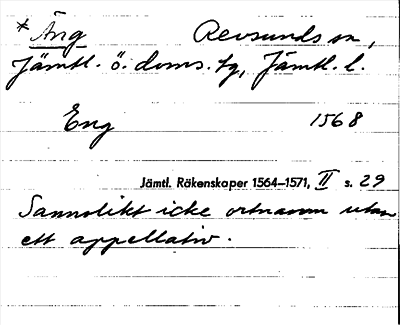 * Äng Revsunds sn,
Jämtl. ö. doms. tg, Jämtl. l.
Eng 1568
Jämtl. Räkenskaper 1564–1571, II s. 29
Sannolikt icke ortnamn utan
ett appellativ.